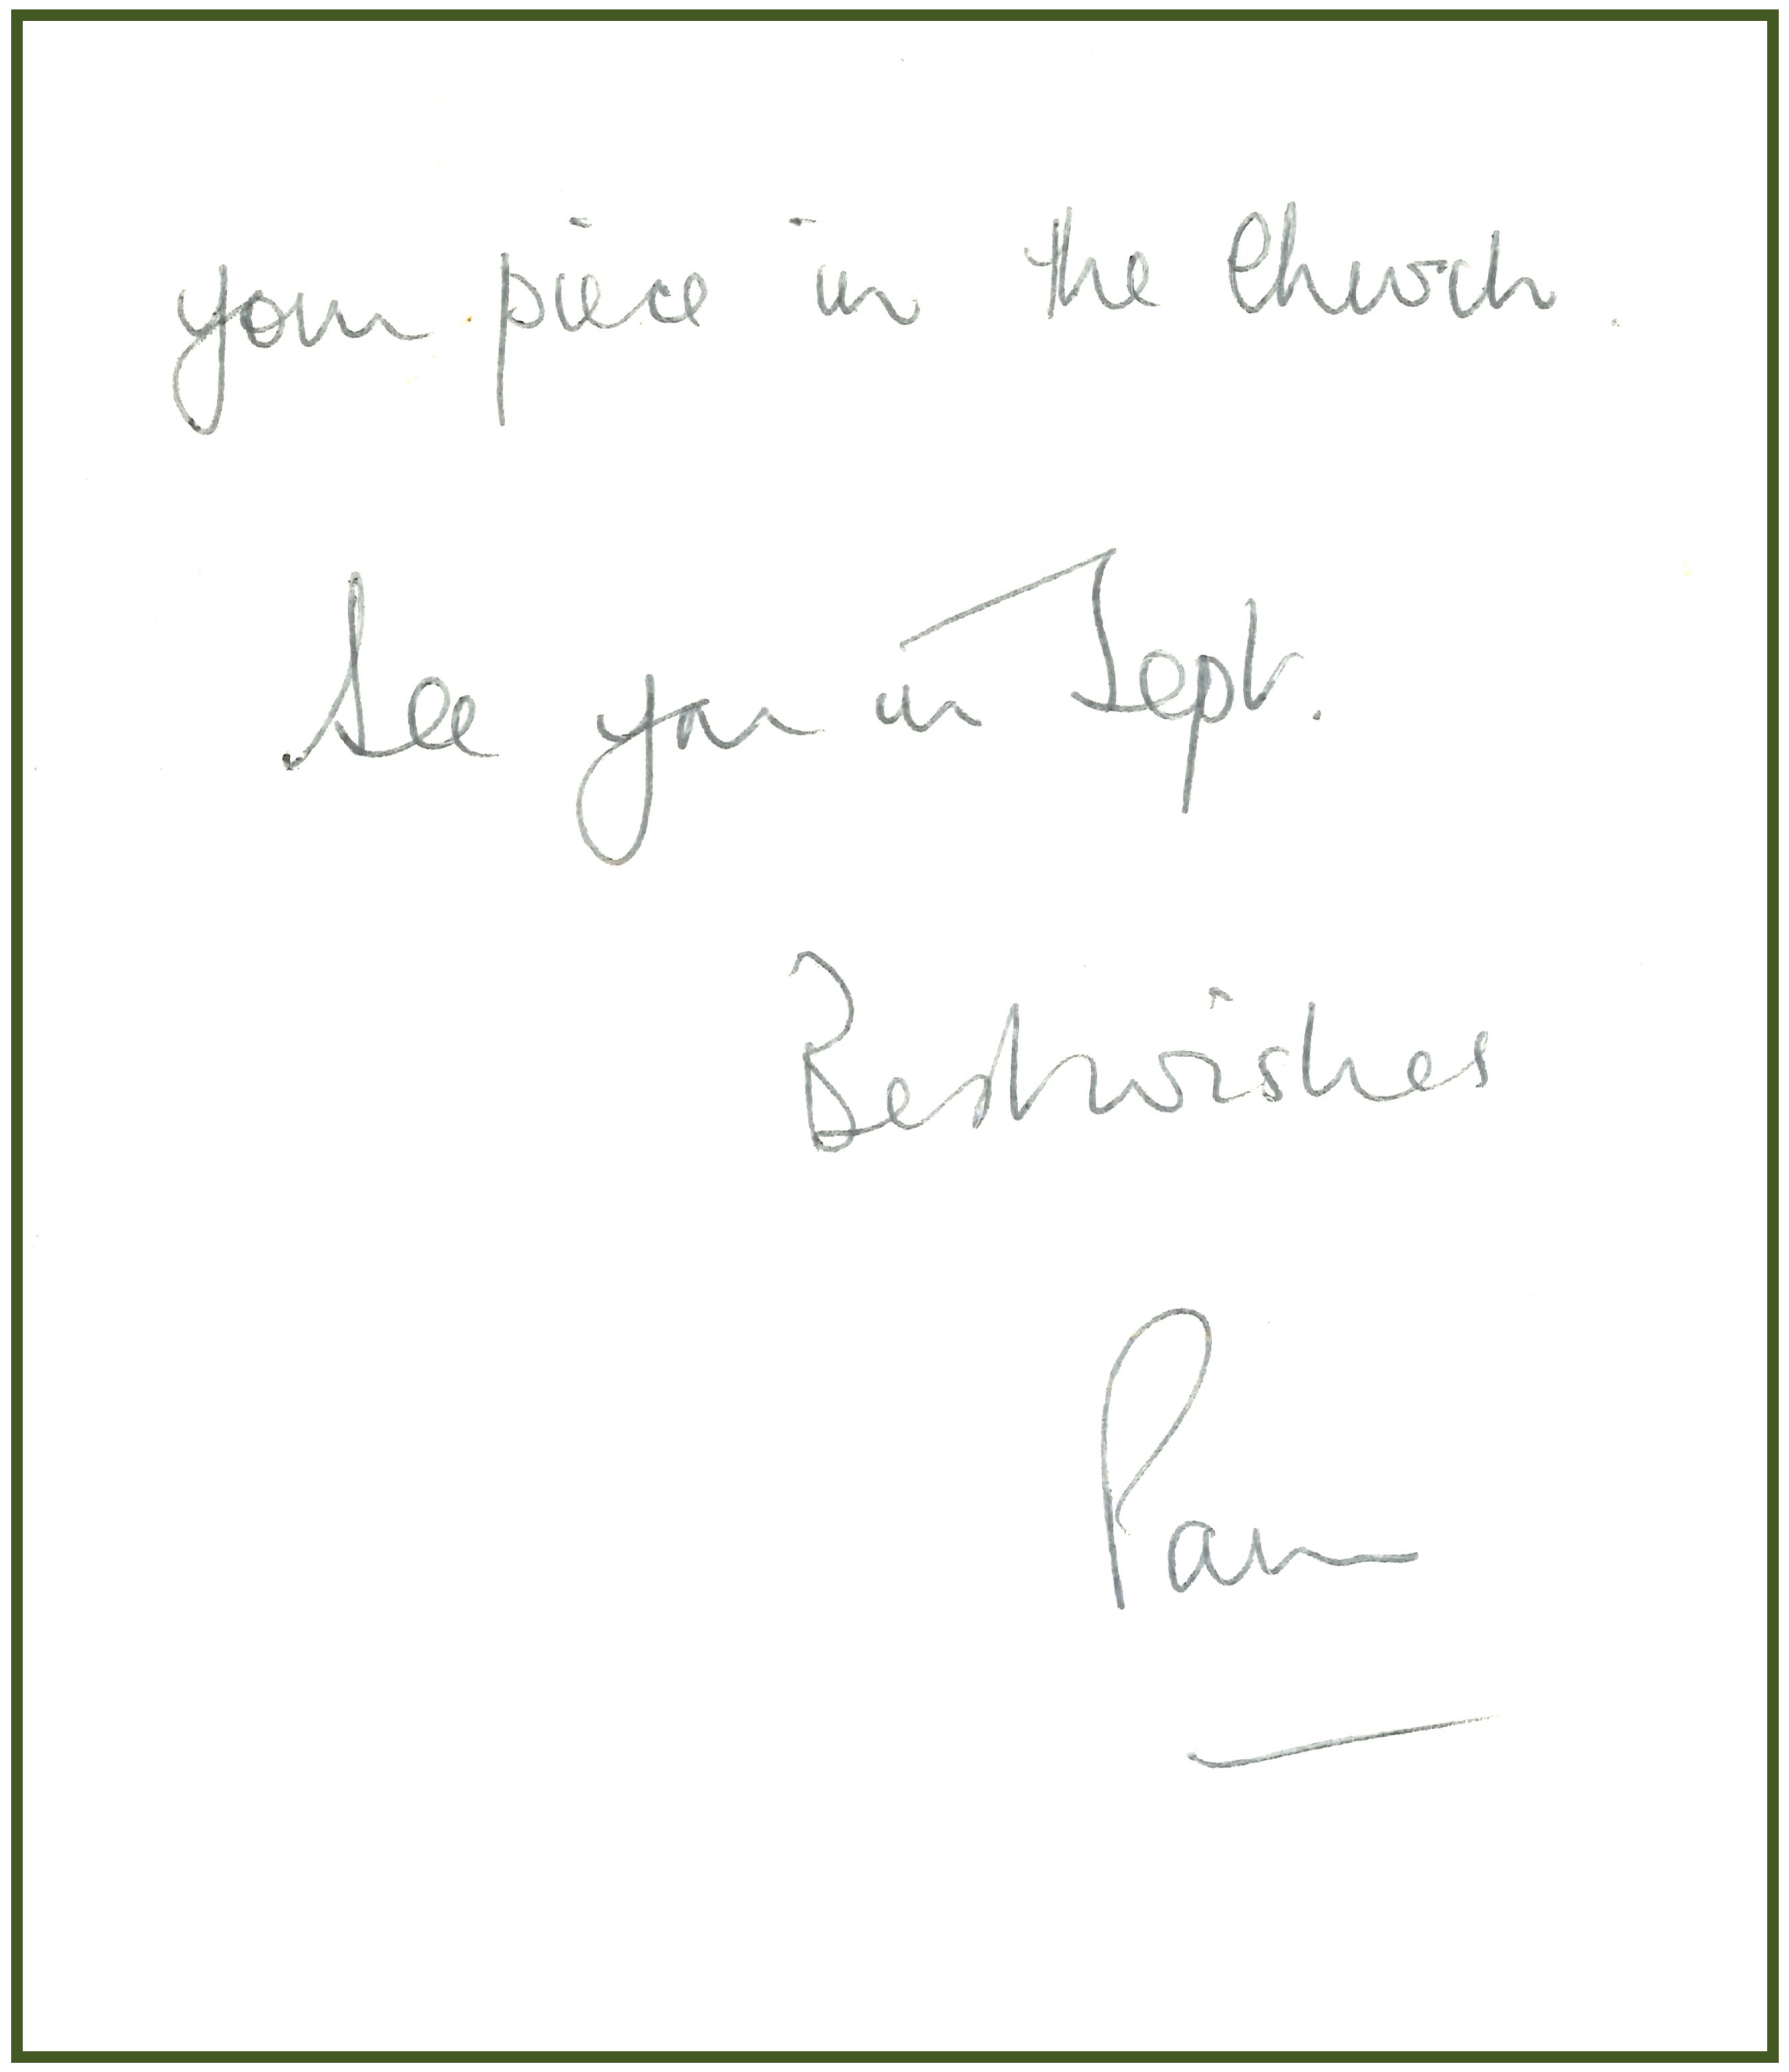 your piece in the Church.
See you in Sept.
Best wishes
Pam